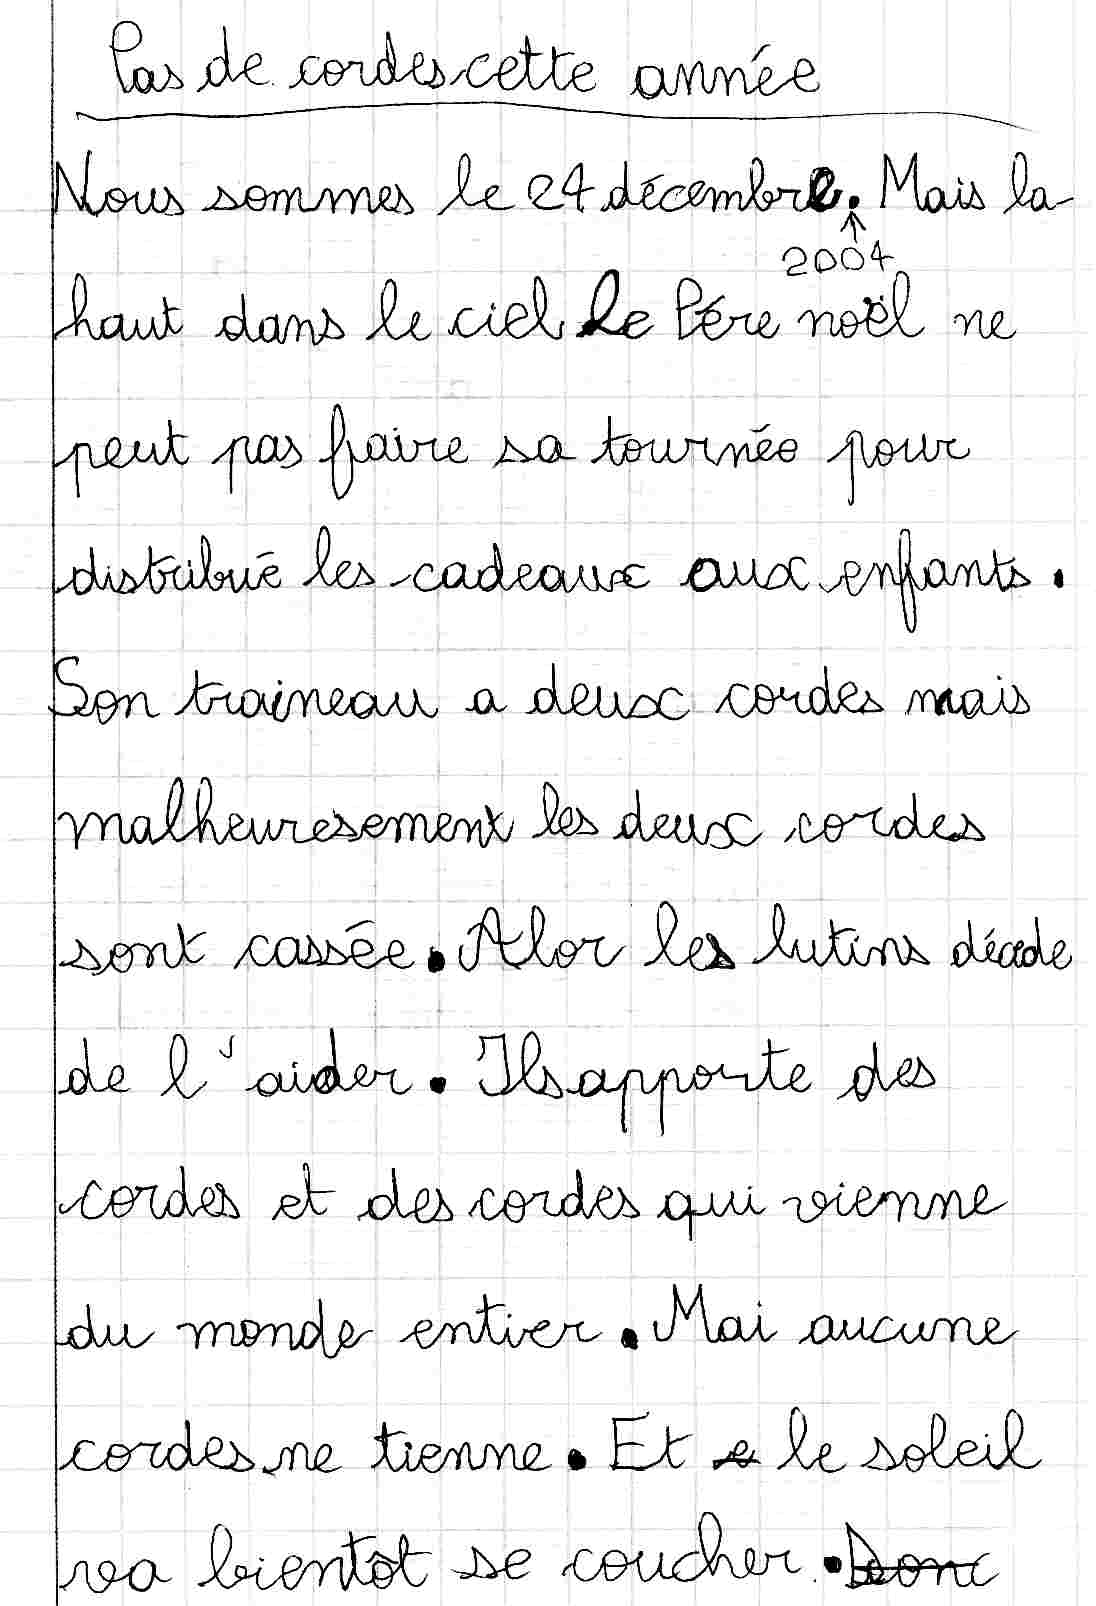 Pas de cordes cette année
Nous sommes le 24 décembre. Mais la-
2004
haut dans le ciel le Père noël ne
peut pas faire sa tournée pour
distribué les cadeaux aux enfants.
Son traineau a deux cordes mais
malheuresement les deux cordes
sont cassée. Alor les lutins décide
de l'aider. Ils apporte des
cordes et des cordes qui vienne
du monde entier. Mai aucune
cordes ne tienne. Et le soleil
va bientôt se coucher. Donc